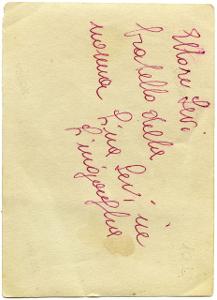 Ettore Levi
fratello della
nonna Lina Levi in
Sinigaglia